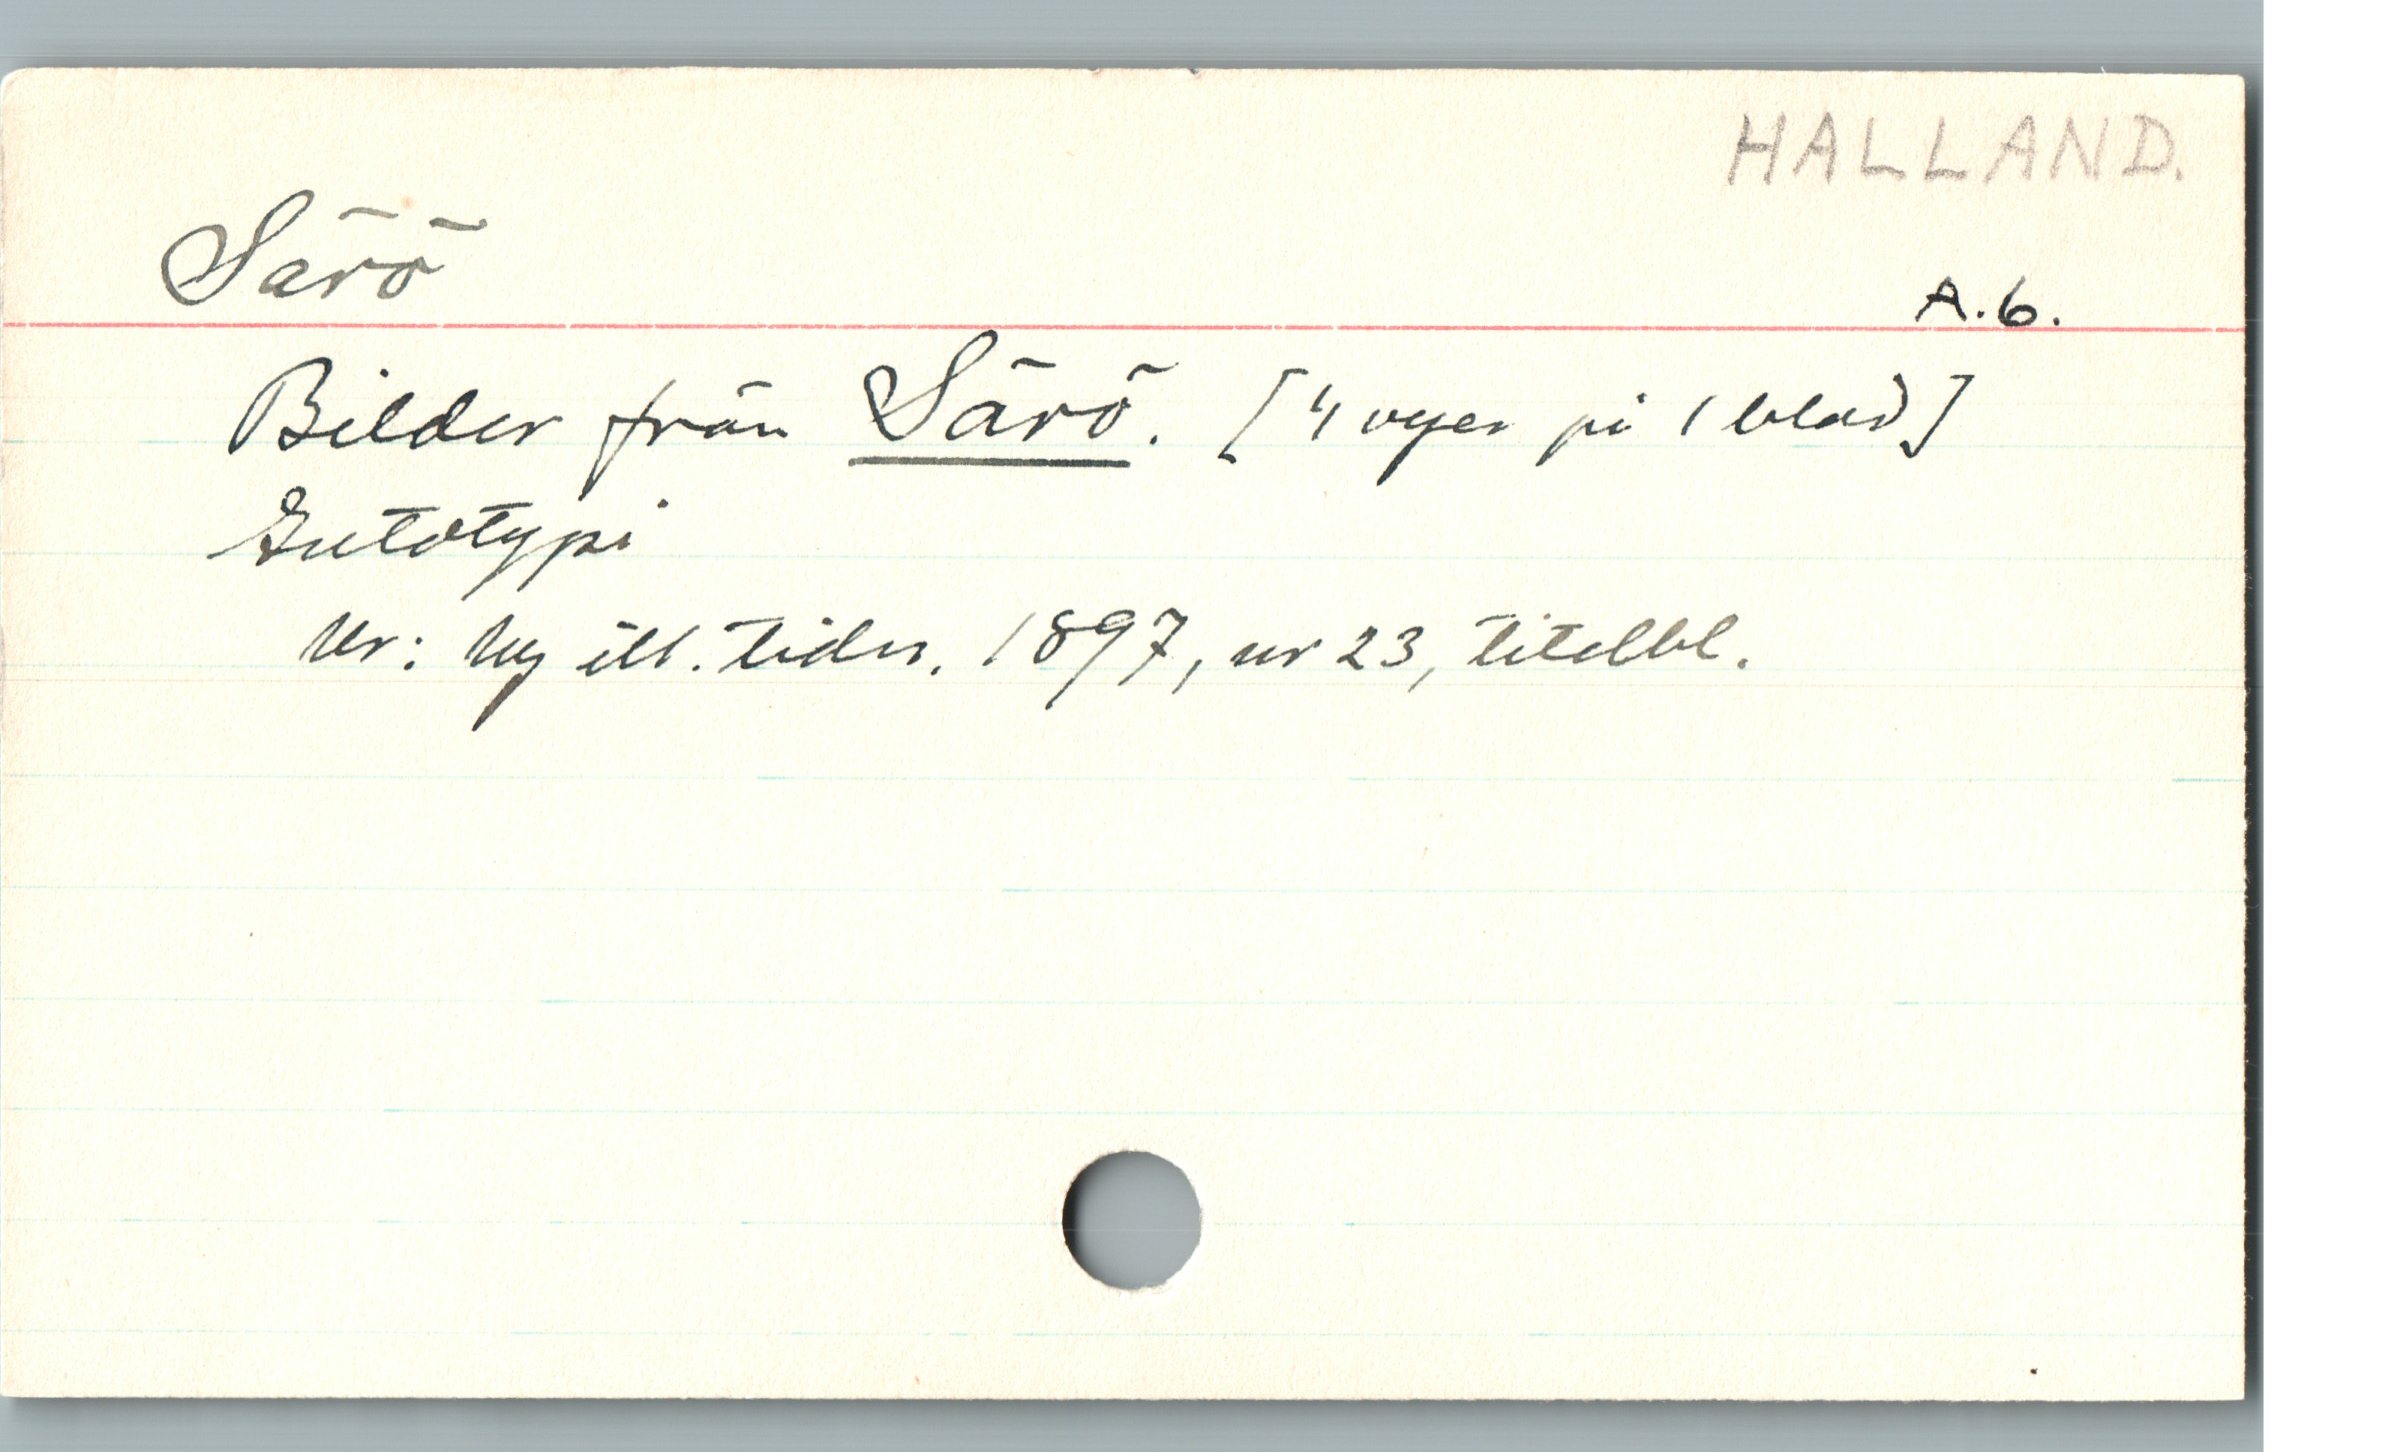 HALLAND.
Särö
A.6.
Bilder från Särö. [4 vyer på 1 blad]
Autotypi
Ur: Ny ill. tidn. 1897, nr 23, titelbl.